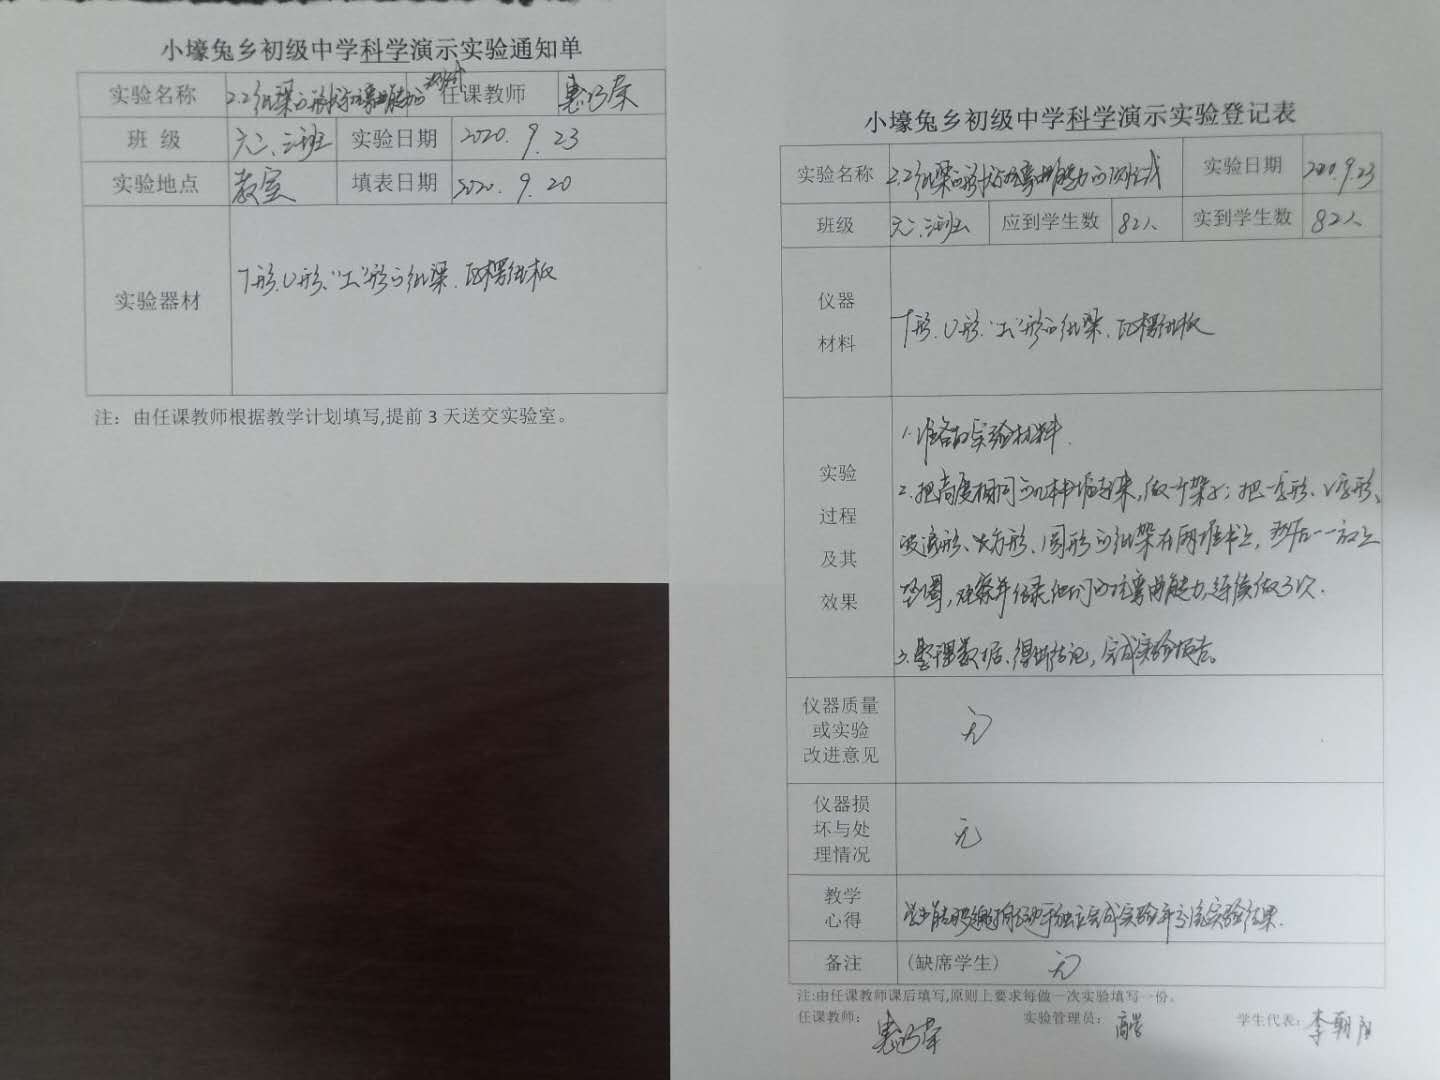 小壕兔乡初级中学科学演示实验通知单
实验名称 2.2纸梁的形状与抗弯曲能力的测试 任课教师 惠巧荣
班 级 六二、三班 实验日期 2020.9.23
实验地点 教室 填表日期 2020.9.20
实验器材 T形、U形、"工"形的纸梁、瓦楞纸板
注：由任课教师根据教学计划填写,提前 3 天送交实验室。
小壕兔乡初级中学科学演示实验登记表
实验名称 2.2纸梁的形状与抗弯曲能力的测试 实验日期 2020.9.23
班级 六二、三班 应到学生数 82人 实到学生数 82人
仪器
材料
T形、U形、"工"形的纸梁、瓦楞纸板
实验
过程
及其
效果
1.准备的实验材料.
2.把高度相同的几本书堆起来,做个架子;把一字形、V字形、
波浪形、长方形、圆形的纸架在两堆书上,然后一一放上
垫圈,观察并记录他们的抗弯曲能力,连续做3次.
3.整理数据、得出结论,完成实验报告。
仪器质量
或实验
改进意见
无
仪器损
坏与处
理情况
无
教学
心得
学生能积极动手独立完成实验并交流实验结果.
备注 (缺席学生) 无
注:由任课教师课后填写,原则上要求每做一次实验填写一份。
任课教师: 惠巧荣 实验管理员: 学生代表: 李朝阳